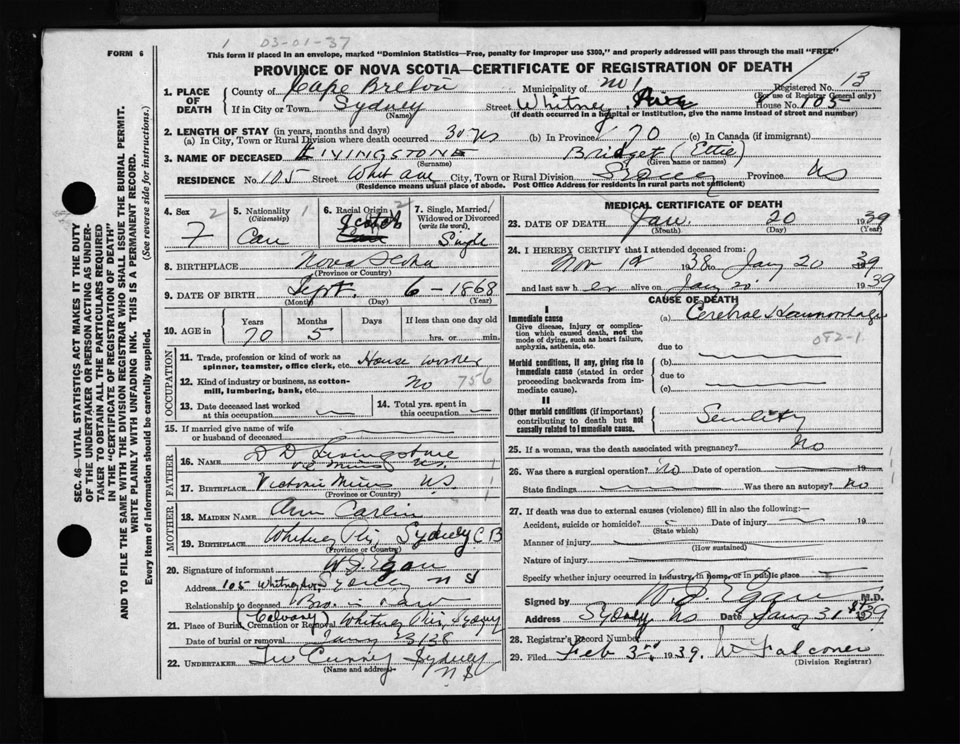 1 03-01-37
FORM 6
This form if placed in an envelope, marked "Dominion Statistics—Free, penalty for improper use $300," and properly addressed will pass through the mail "FREE"
PROVINCE OF NOVA SCOTIA—CERTIFICATE OF REGISTRATION OF DEATH
SEC. 46—VITAL STATISTICS ACT MAKES IT THE DUTY
OF THE UNDERTAKER OR PERSON ACTING AS UNDER-
TAKER TO OBTAIN ALL THE PARTICULARS REQUIRED
IN THE "CERTIFICATE OF REGISTRATION OF DEATH"
AND TO FILE THE SAME WITH THE DIVISION REGISTRAR WHO SHALL ISSUE THE BURIAL PERMIT.
WRITE PLAINLY WITH UNFADING INK. THIS IS A PERMANENT RECORD.
Every item of information should be carefully supplied. (See reverse side for instructions.)
1. PLACE OF DEATH County of Cape Breton Municipality of no Registered No. 13
(For use of Registrar General only)
If in City or Town Sydney Street Whitney House No. 105
(Name) (If death occurred in a hospital or institution, give the name instead of street and number)
2. LENGTH OF STAY (in years, months and days)
(a) In City, Town or Rural Division where death occurred 30 yrs (b) In Province 70 (c) In Canada (if immigrant)
3. NAME OF DECEASED LIVINGSTONE Bridget (Ettie)
(Surname) (Given name or names)
RESIDENCE No. 105 Street Whit ave City, Town or Rural Division Sydney Province NS
(Residence means usual place of abode. Post Office Address for residents in rural parts not sufficient)
4. Sex 2 5. Nationality 1 6. Racial Origin 2 7. Single, Married, Widowed or Divorced
(Citizenship) (write the word)
F Can Scotch Single
8. BIRTHPLACE Nova Scotia
(Province or Country)
9. DATE OF BIRTH Sept. 6 - 1868
(Month) (Day) (Year)
10. AGE in Years Months Days If less than one day
70 5 hrs. or min.
OCCUPATION
11. Trade, profession or kind of work as spinner, teamster, office clerk, etc. House worker
12. Kind of industry or business, as cotton-mill, lumbering, bank, etc. no 756
13. Date deceased last worked at this occupation
14. Total yrs. spent in this occupation
15. If married give name of wife or husband of deceased
FATHER
16. NAME D D Livingstone
17. BIRTHPLACE Victoria Mines NS
(Province or Country)
MOTHER
18. MAIDEN NAME Ann Carlin
19. BIRTHPLACE Whitney Pier, Sydney C B
(Province or Country)
20. Signature of informant W J Egan
Address 105 Whitney Ave, Sydney N S
Relationship to deceased Bro in law
21. Place of Burial, Cremation or Removal (Calvary) Whitney Pier, Sydney
Date of burial or removal
22. UNDERTAKER Sydney N S
(Name and address)
MEDICAL CERTIFICATE OF DEATH
23. DATE OF DEATH Jan 20 1939
(Month) (Day) (Year)
24. I HEREBY CERTIFY that I attended deceased from:
Nov 1938 to Jany 20 1939
and last saw her alive on Jany 20 1939
CAUSE OF DEATH
I
Immediate cause (a) Cerebral Haemorrhage
Give disease, injury or complication which caused death, not the mode of dying, such as heart failure, asphyxia, asthenia, etc.
082-1
due to
Morbid conditions, if any, giving rise to immediate cause (stated in order proceeding backwards from immediate cause).
(b)
due to
(c)
II
Other morbid conditions (if important) contributing to death but not causally related to immediate cause.
Senility
25. If a woman, was the death associated with pregnancy? No
26. Was there a surgical operation? No Date of operation 19
State findings Was there an autopsy? No
27. If death was due to external causes (violence) fill in also the following:—
Accident, suicide or homicide? Date of injury 19
(State which)
Manner of injury
(How sustained)
Nature of injury
Specify whether injury occurred in industry, in home, or in public place
Signed by W. J. Egan M.D.
Address Sydney NS Date Jany 31st 1939
28. Registrar's Record Number
29. Filed Feb 3rd, 1939. W Falconer
(Division Registrar)